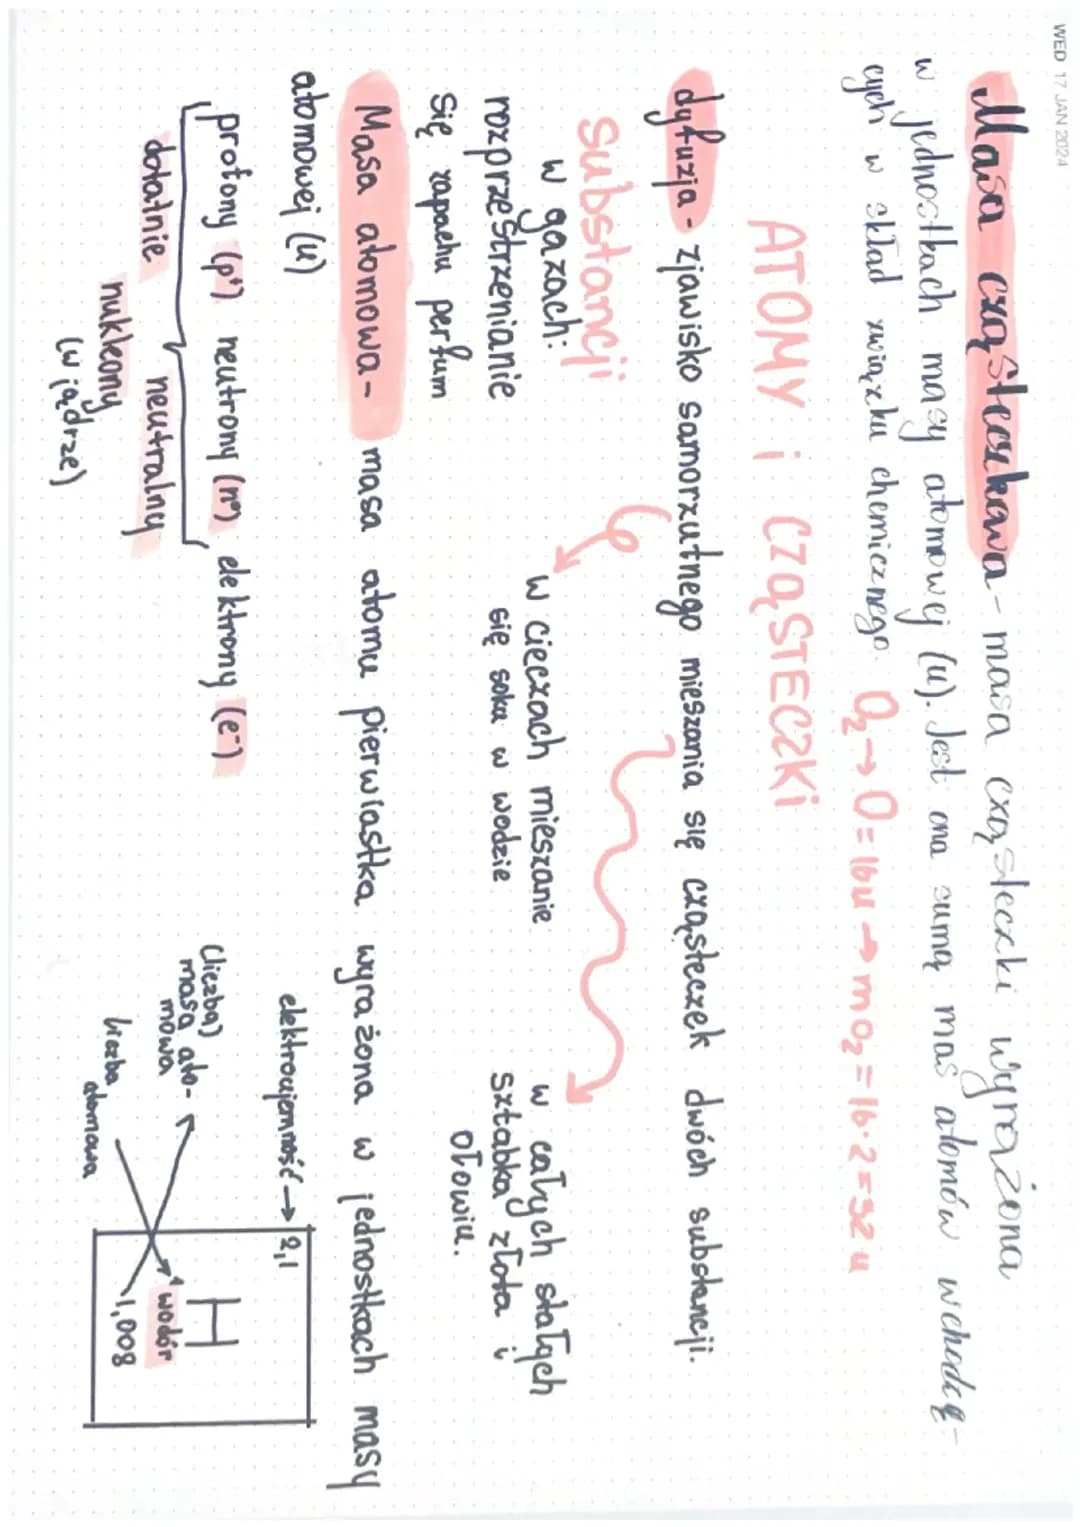 WED 17 JAN 2024
Masa cząsteczkowa - masa cząsteczki wyrażona
w jednostkach masy atomowej (u). Jest ona sumą mas atomów wchodzą-
cych w skład związku chemicznego. O₂ → O = 16u → mO₂ = 16·2 = 32 u
ATOMY i CZĄSTECZKI
dyfuzja - zjawisko samorzutnego mieszania się cząsteczek dwóch substancji.
substancji
w gazach:
rozprzestrzenianie
się zapachu perfum
w cieczach mieszanie
się soku w wodzie
w całych stałych
sztabka złota i
ołowiu.
Masa atomowa - masa atomu pierwiastka wyrażona w jednostkach masy
atomowej (u)
protony (p⁺) neutrony (n⁰) elektrony (e⁻)
dotatnie neutralny
nukleony
(w jądrze)
elektroujemność → 2,1
(liczba)
masa ato-
mowa
liczba
atomowa
H
1
wodór
1,008